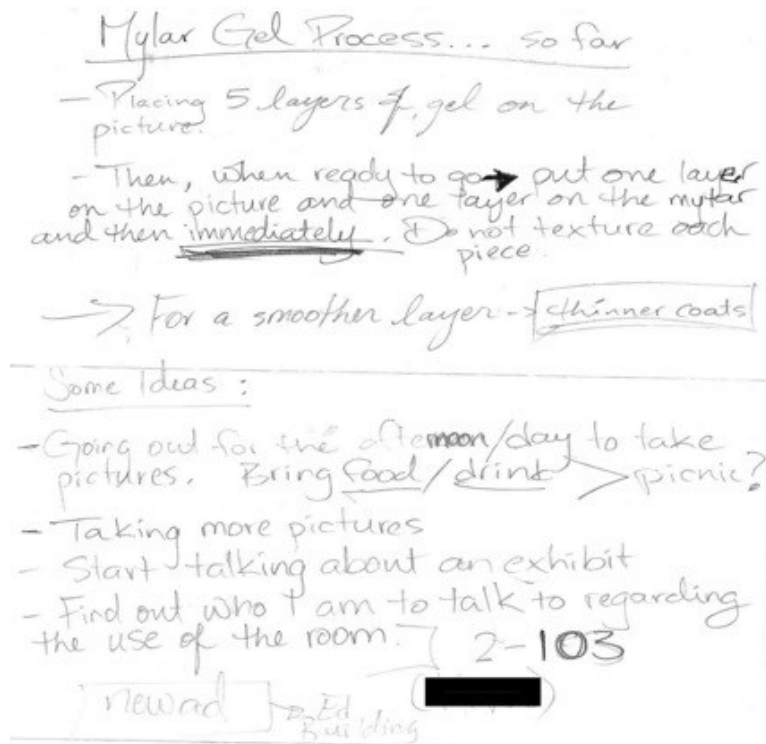 Mylar Gel Process... so far
- Placing 5 layers of gel on the
picture.
- Then, when ready to go → put one layer
on the picture and one layer on the mylar
and then immediately. Do not texture each
piece.
→ For a smoother layer → thinner coats
Some Ideas:
- Going out for the afternoon/day to take
pictures. Bring food/drink > picnic?
- Taking more pictures
- Start talking about an exhibit
- Find out who I am to talk to regarding
the use of the room. 2-103
→ Ed
Building